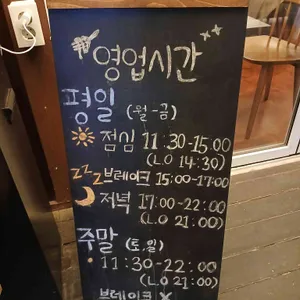 영업시간
평일 (월-금)
점심 11:30-15:00
(L.O 14:30)
zzz 브레이크 15:00-17:00
저녁 17:00-22:00
(L.O 21:00)
주말 (토,일)
11:30-22:00
(L.O 21:00)
브레이크 X